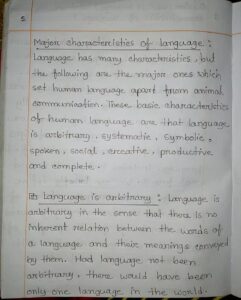 5.
Major characteristics of language :
Language has many characteristics, but
the following are the major ones which
set human language apart from animal
communication. These basic characteristics
of human language are that language
is arbitrary, systematic, symbolic,
spoken, social, creative, productive
and complete.
Language is arbitrary : Language is
arbitrary in the sense that there is no
inherent relation between the words of
a language and their meanings conveyed
by them. Had language not been
arbitrary, there would have been
only one language in the world.